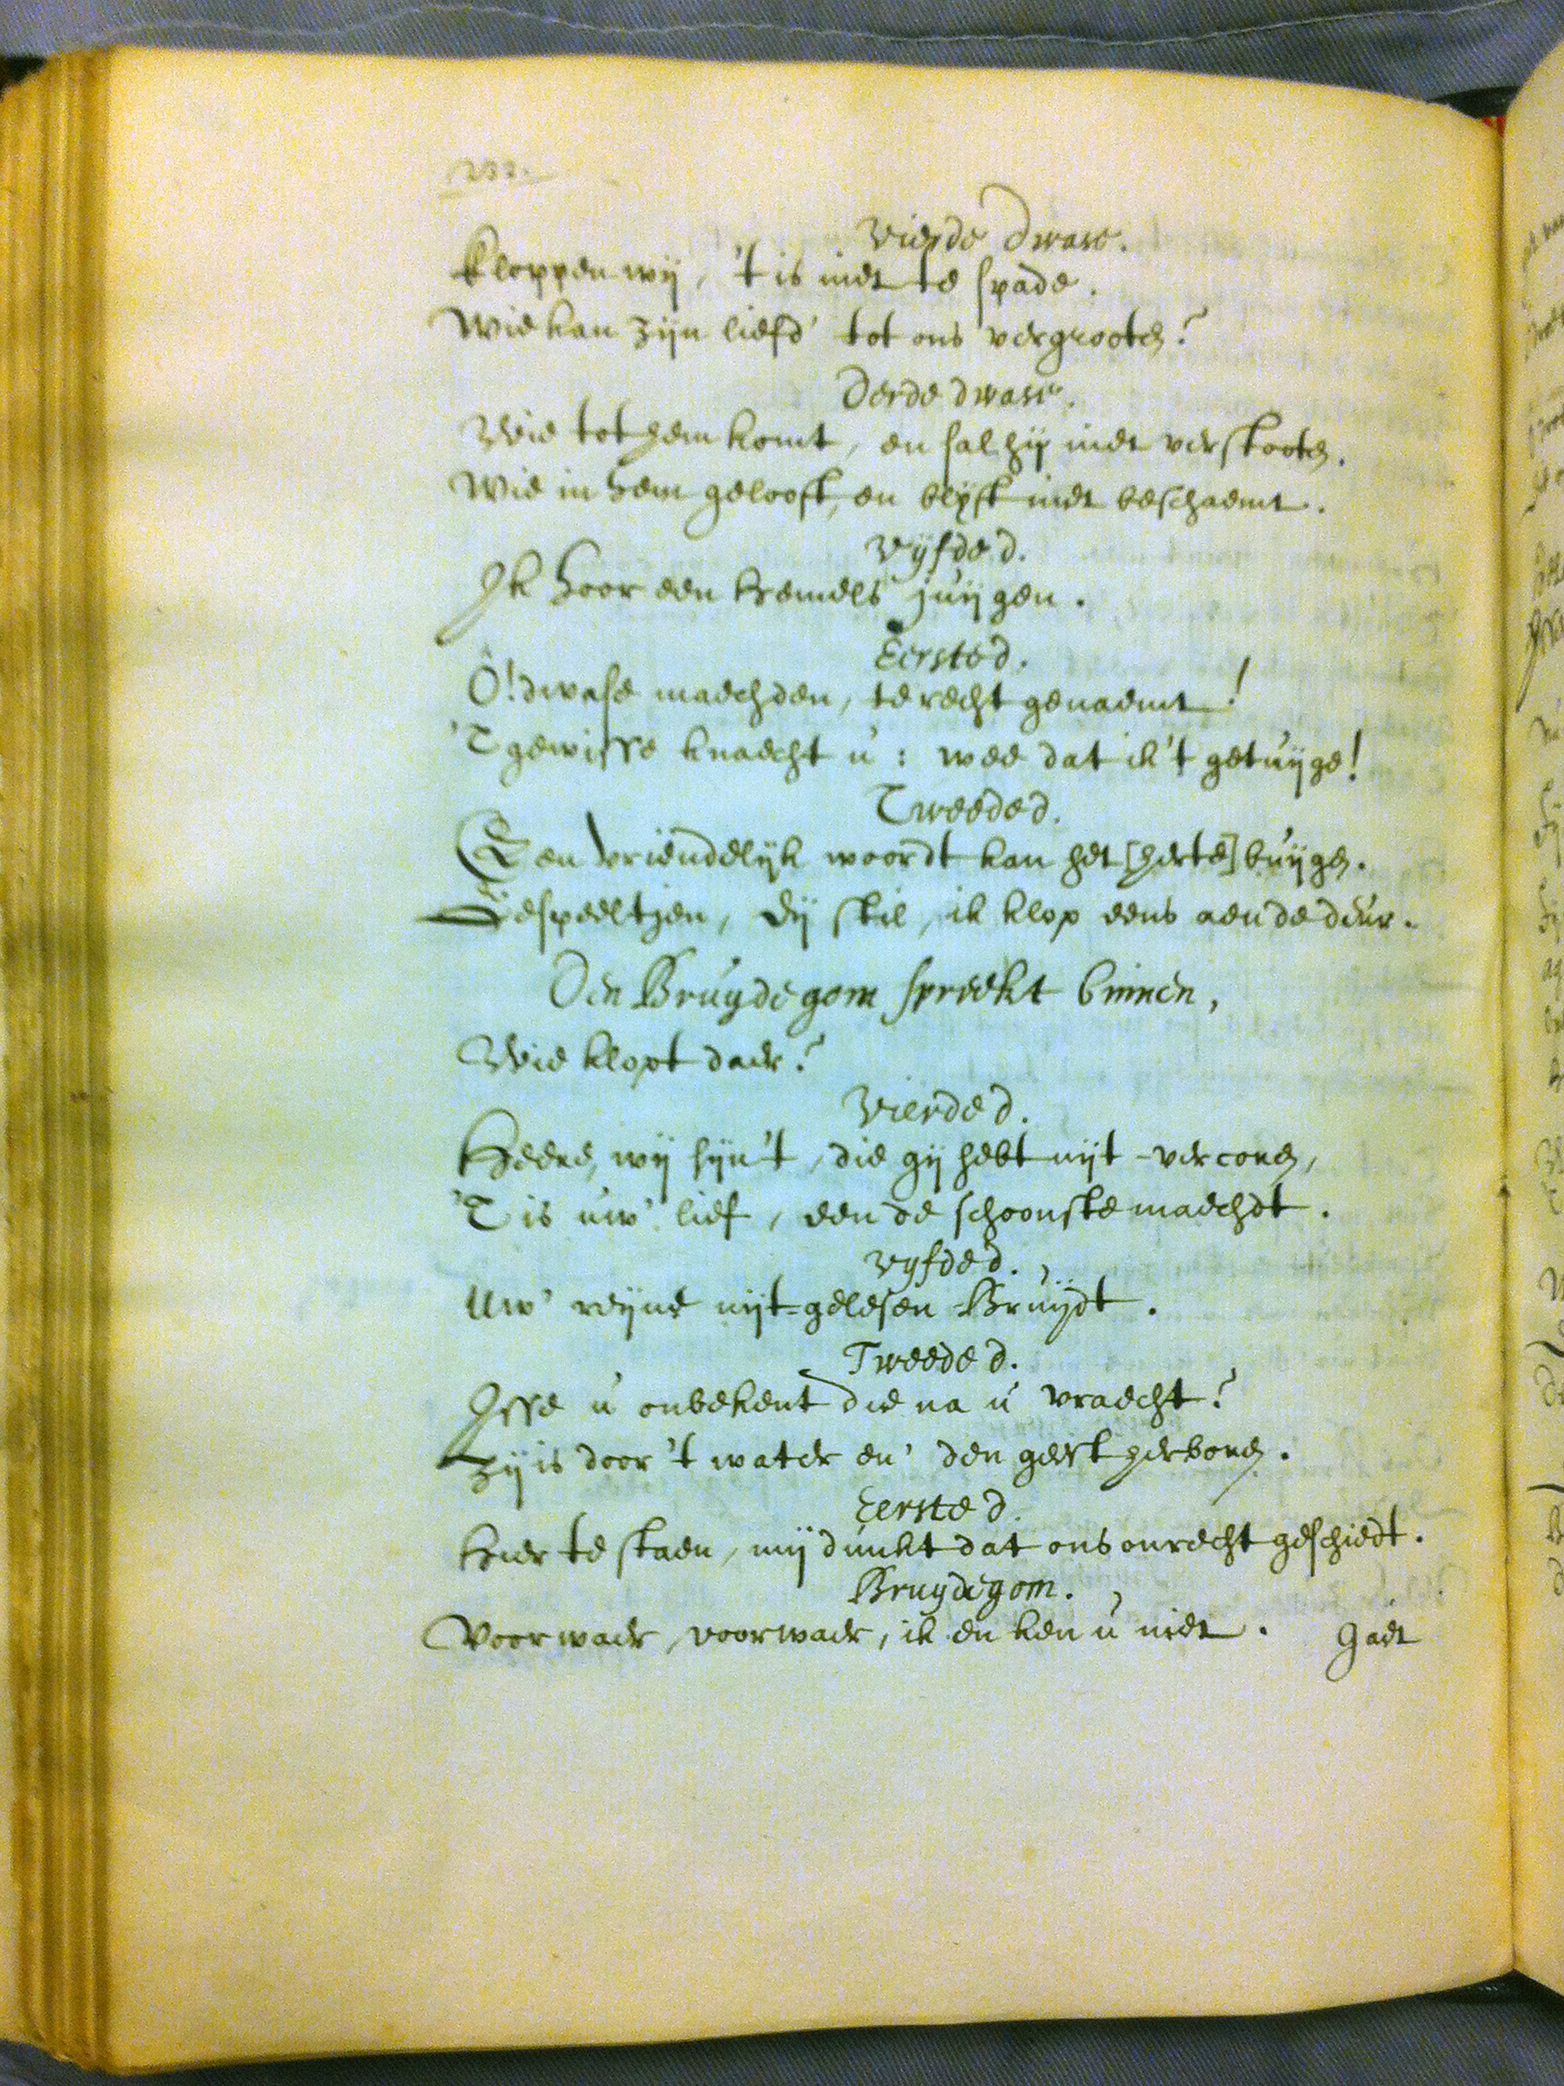 232.
Vierde dwase.
Kloppen wij, 't is niet te spade.
Wie kan zijn liefd' tot ons vergrooten?
Derde dwase.
Wie tot hem komt, en sal hij niet verstooten.
Wie in hem gelooft, en blijft niet beschaemt.
Vijfde d.
Ik hoor een hemels juijgen.
Eerste d.
O! dwase maechden, te recht genaemt!
'T gewisse knaecht u: wee dat ik 't getuijge!
Tweede d.
Een vriendelijk woordt kan het [herte] buijgen.
Gespeeltjen, sij stil, ik klop eens aen de deur.
Den Bruydegom spreekt binnen,
Wie klopt daer?
Vierde d.
Heere, wij sijn 't, die gij hebt uijt-vercoren,
'T is uw' lief, een de schoonste maechdt.
Vijfde d.
Uw' reijne uijt-gelesen Bruijdt.
Tweede d.
Isse u onbekent die na u vraecht?
Zij is door 't water en' den geest herboren.
Eerste d.
Hier te staen, mij dunkt dat ons onrecht geschiedt.
Bruydegom.
Voorwaer, voorwaer, ik en ken u niet.
Gaet